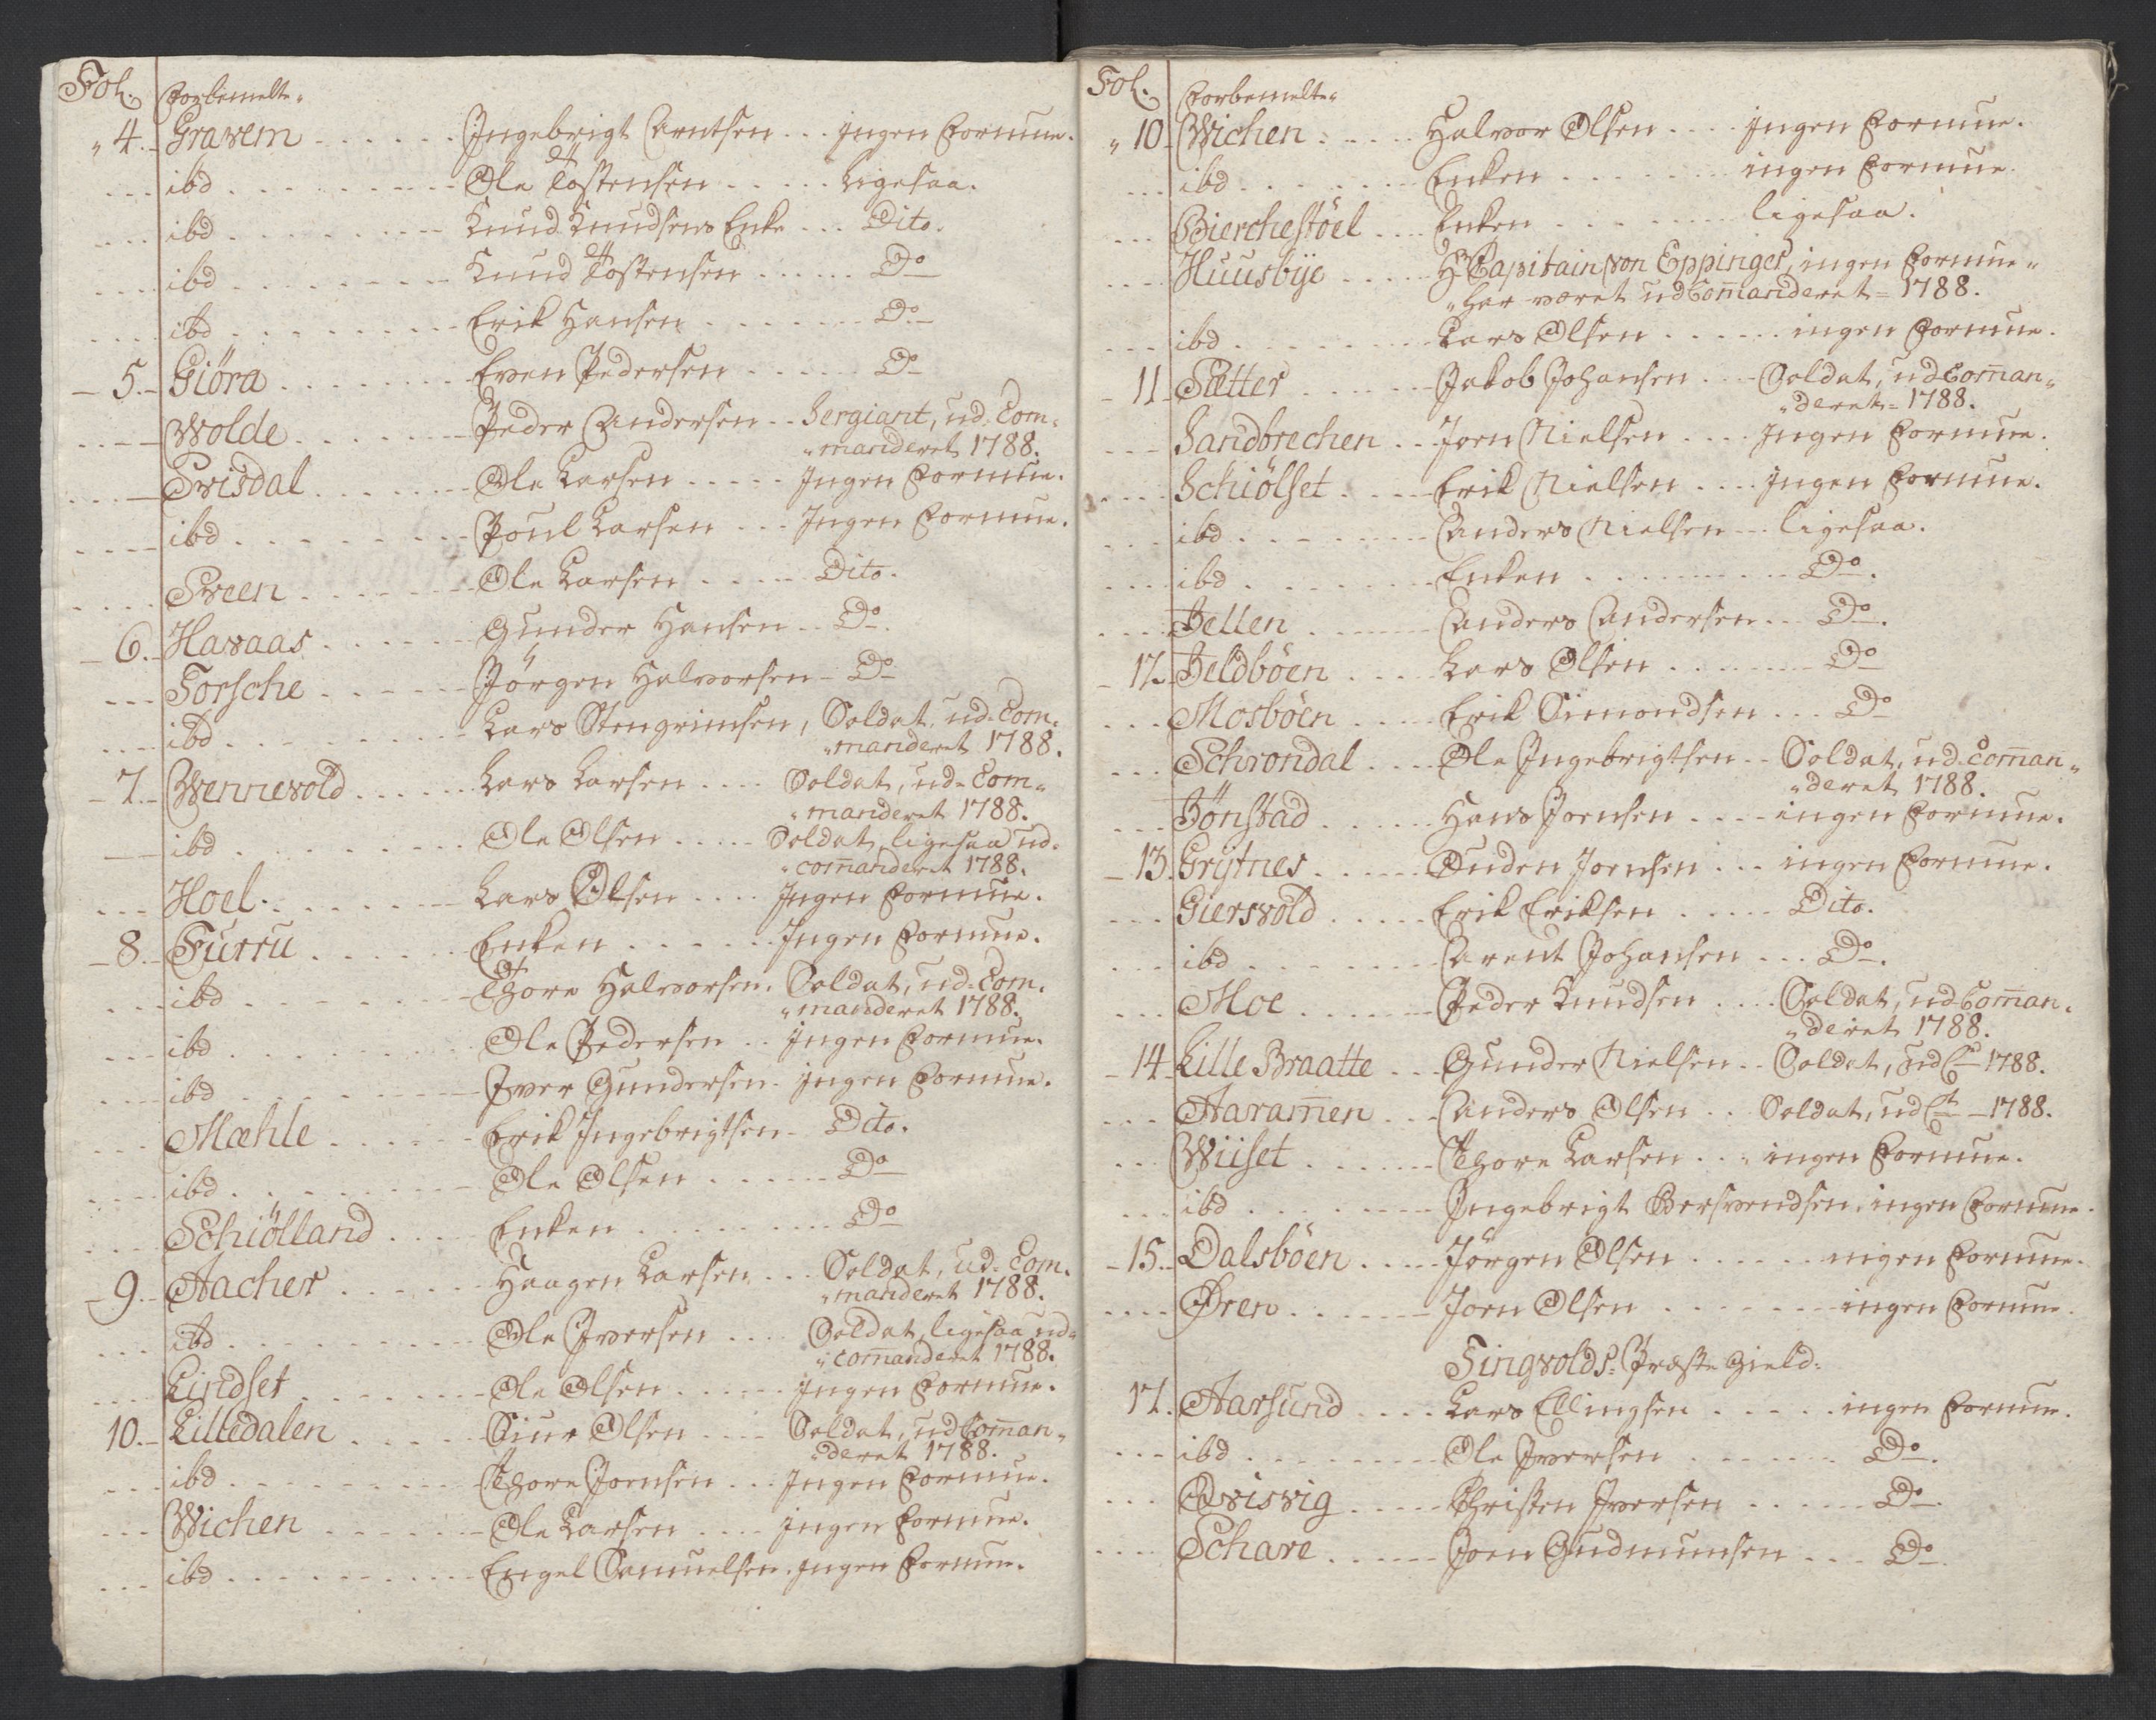 Fol. Forbemelte
" 4. Gravem . . . . . . Ingebrigt Arntsen . . . Ingen Formue.
. . . ibd . . . . . . . . . Ole Tostensen . . . . . ligesaa.
. . . . ibd . . . . . . . . . Knud Knudsens Enke . . . Dito.
. . . . ibd . . . . . . . . . Knud Tostensen . . . . . . Do
. . . . ibd . . . . . . . . . Erik Hansen . . . . . . . Do
— 5. — Giöra . . . . . . . . Even Pedersen . . . . . . Do
. . . . Wolde . . . . . . . Peder Andersen . . Sergiant, ud-Com-
"manderet 1788.
. . . — Svisdal . . . . . . . Ole Larsen . . . . . Ingen Formue.
. . . . ibd . . . . . . . . . Poul Larsen . . . Ingen Formue.
. . . . Sveen . . . . . . . Ole Larsen . . . . . Dito.
— 6. — Havaas . . . . . . Gunder Hansen . . Do.
. . . Torsche . . . . . . Jörgen Halvorsen — Do
. . . . ibd . . . . . . . . . Lars Stengrimsen, Soldat, ud-Com-
"manderet 1788.
— 7. — Wennevold . . . . . . Lars Larsen . . . . Soldat, ud-Com-
"manderet 1788.
— ibd . . . . . . . . . Ole Olsen . . . . . Soldat, ligesaa ud-
"com̄anderet 1788.
. . . Hoel . . . . . . . . Lars Olsen . . . . Ingen Formue.
— 8. — Furru . . . . . . Enken . . . . . . . Ingen Formue.
. . . ibd . . . . . . . . . Thore Halvorsen. Soldat, ud-Com-
"manderet 1788.
. . . ibd . . . . . . . . . Ole Pedersen . . Ingen Formue.
. . . . ibd . . . . . . . . . Iver Gundersen . Ingen Formue.
. . . Mæhle . . . . . . . Erik Ingebrigtsen . Dito.
. . . . ibd . . . . . . . . . Ole Olsen . . . . . . Do
. . . Schiölland . . . . Enken . . . . . . . . . Do
— 9. — Aacher . . . . . . Haagen Larsen . . . Soldat, ud-Com-
"manderet 1788.
. . . ibd . . . . . . . . . Ole Iversen . . . . Soldat, ligesaa ud-
"com̄anderet 1788.
. . . Lindset . . . . . . . Ole Olsen . . . . . . Ingen Formue.
10. — Lilledalen . . . . . Siur Olsen . . . . Soldat, ud Com̄an-
"deret 1788.
. . . ibd . . . . . . . . . Thore Joensen . . . Ingen Formue.
. . . Wichen . . . . . . . Ole Larsen . . . . Ingen Formue.
. . . ibd . . . . . . . . . Engel Samuelsen . Ingen Formue.
Fol. Forbemelte
" 10 Wichen . . . . . Halvor Olsen . . . . Ingen Formue.
. . . ibd . . . . . . . Enken . . . . . . . . ingen Formue.
. . . Bierchestöel . . . Enken . . . . . . . . ligesaa.
. . . Huusbÿe . . . . . Hr Capitain von Eppinger, ingen Formue"
"har været ud Com̄anderet = 1788.
. . . ibd . . . . . . . . Lars Olsen . . . . . . ingen Formue.
— 11 — Sætter . . . . . . Jakob Johansen . . . Soldat, ud Com̄an-
"deret = 1788.
. . . Sandbrechen . . Joen Nielsen . . . . Ingen Formue.
. . . . Schiölset . . . . Erik Nielsen . . . . Ingen Formue.
. . . ibd . . . . . . . Anders Nielsen . . . ligesaa.
. . . . ibd . . . . . . . Enken . . . . . . . . . Do.
. . . . Jellen . . . . . . Anders Andersen . . Do.
— 12. Jeldböen . . . . Lars Olsen . . . . . . . . Do
. . . Mosböen . . . . . Erik Simondsen . . . Do
. . . Schrondal . . . . Ole Ingebrigtsen . . Soldat, ud-Com̄an-
"deret 1788.
. . . Jönstad . . . . . . Hans Joensen . . . . . ingen Formue.
— 13. Grÿtnes . . . . . . Ouden Joensen . . . ingen Formue.
. . . Giersvold . . . . . Erik Eriksen . . . . . Dito.
. . . ibd . . . . . . . . Arent Johansen . . . Do.
. . . Moe . . . . . . . Peder Knudsen . . . . Soldat, ud Com̄an-
"deret 1788.
— 14 — Lille Braatte . . . Gunder Nielsen . . Soldat, ud C — 1788.
. . . Aaram̄en . . . Anders Olsen . . Soldat, ud Ct — 1788.
. . . Wiiset . . . . . . . Thore Larsen . . . ingen Formue.
. . . ibd . . . . . . . . Ingebrigt Bersvendsen. ingen Formue.
— 15. — Dalsböen . . . . . Jörgen Olsen . . . . . . ingen Formue.
. . . . Øren . . . . . . . Joen Olsen . . . . . . . . ingen Formue.
Tingvolds-Præste Gield.
17. Aarsund . . . . Lars Ellingsen . . . . . ingen Formue.
. . . ibd . . . . . . . . . Ole Iversen . . . . . . . Do.
. . . Qvisvig . . . . . Christen Iversen . . . . . . Do.
. . . . Schare . . . . . . Joen Gudmunsen . . . . Do.